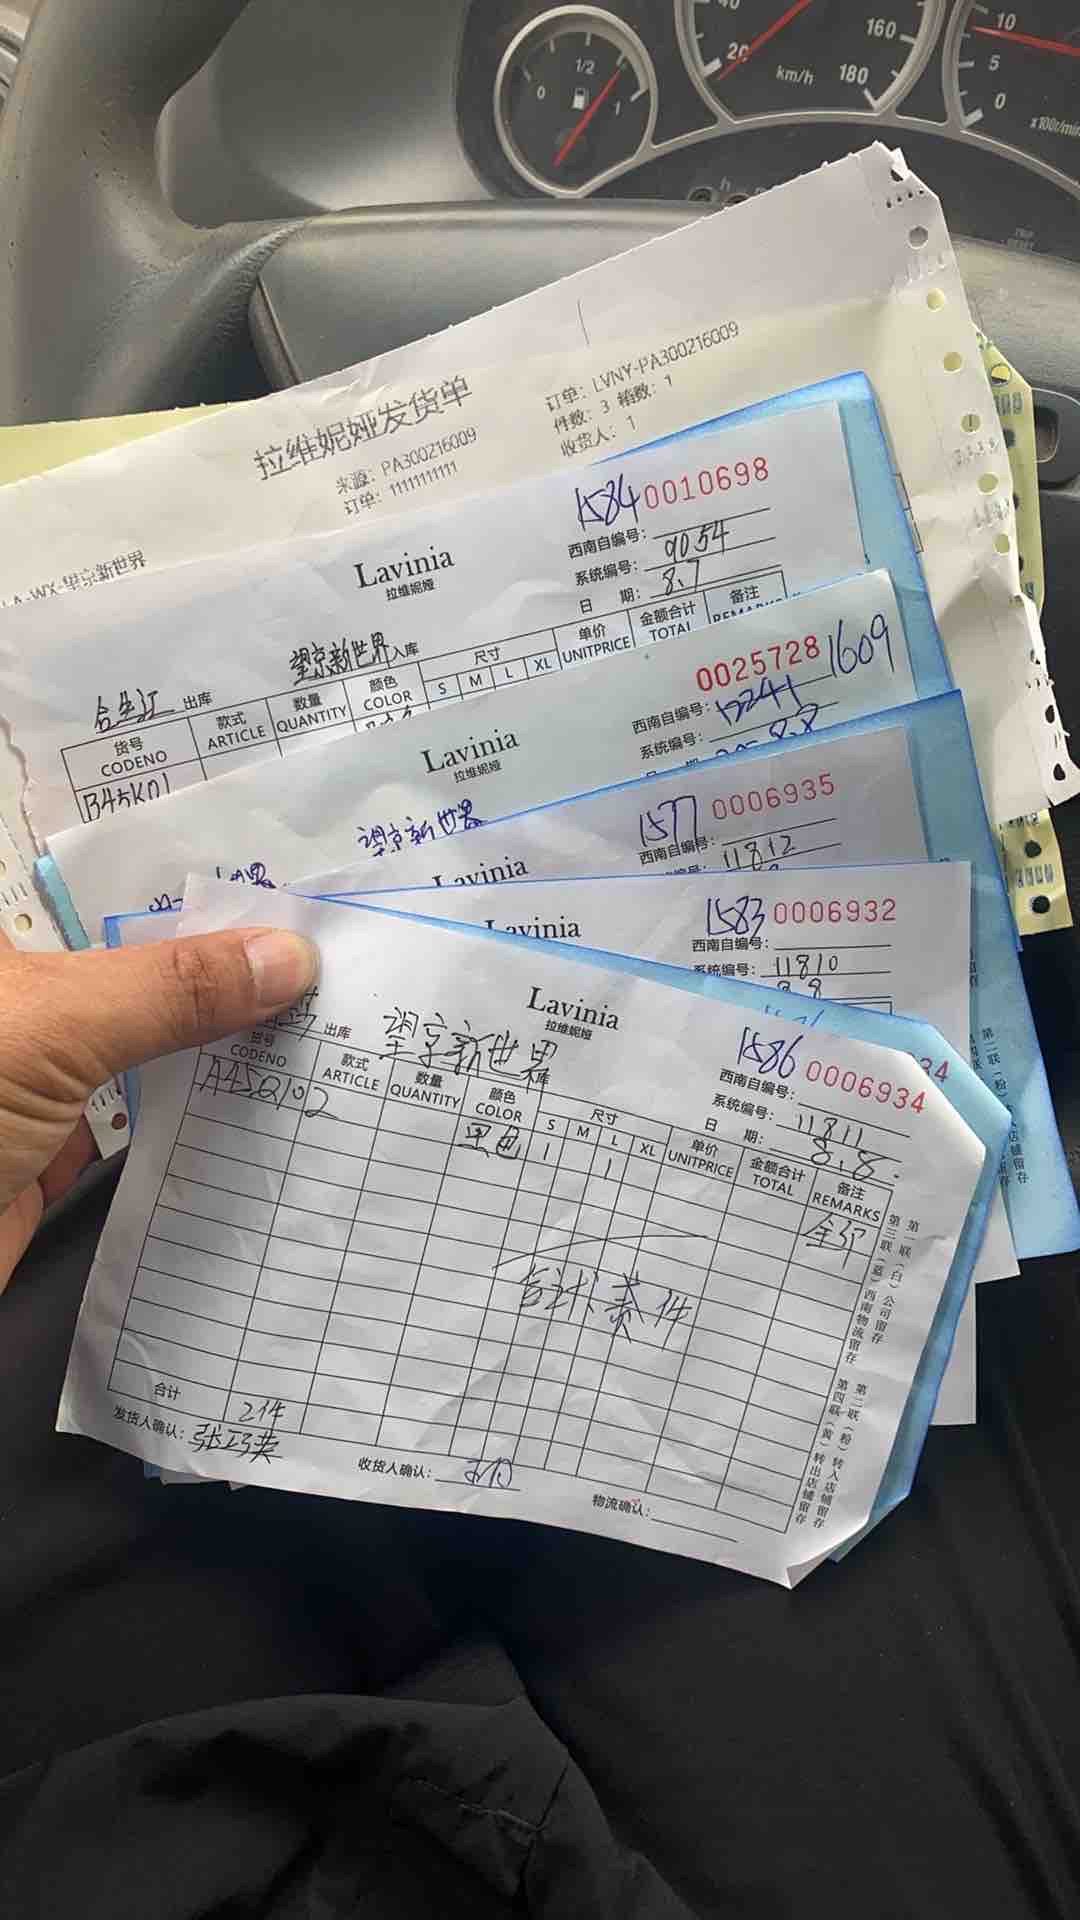 1/2
0
1
40
20
160
180
km/h
10
5
0
x100r/min
拉维妮娅发货单
来源：PA300216009
订单：11111111111
订单：LVNY-PA300216009
件数：3 箱数：1
收货人：1
WX-望京新世界
1584 0010698
Lavinia
拉维妮娅
西南自编号：
系统编号：9054
日 期：8.7
合生汇 出库
望京新世界 入库
货号 款式 数量 颜色 尺寸 单价 金额合计 备注
CODENO ARTICLE QUANTITY COLOR S M L XL UNITPRICE TOTAL
0025728 1609
Lavinia
拉维妮娅
西南自编号：
系统编号：
8.8
望京新世界
1577 0006935
Lavinia
西南自编号：
11812
1583 0006932
Lavinia
西南自编号：
系统编号：11810
34
Lavinia
拉维妮娅
1586 0006934
西南自编号：
系统编号：11811
日 期：8.8.
出库 望京新世界 库
货号 款式 数量 颜色 尺寸 单价 金额合计 备注
CODENO ARTICLE QUANTITY COLOR S M L XL UNITPRICE TOTAL REMARKS
A45Q102 黑色 1 1
合计 2件
发货人确认：张巧英
收货人确认：
物流确认：
第一联（白）公司留存 第二联（粉）转入店铺留存
第三联（蓝）西南物流留存 第四联（黄）转出店铺留存